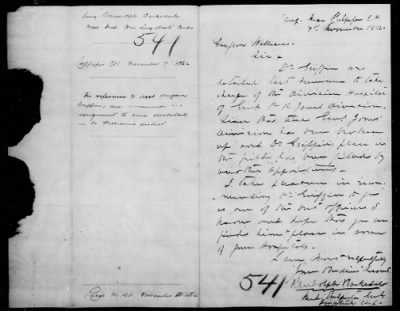 Surg Randolph Barksdale
541
Culpeper CH. November 7. 1862
In reference to Asst Surgeon
Griffin, and recommends his
assignment to some
Camp Near Culpeper C.H.
7th November 1862
Surgeon Williams.
Sir
Dr. Griffin was
detailed last summer to take
charge of the Division Hospital
of Genl. Jones' Division.
Since that time Genl Jones'
Division has been broken
up and Dr. Griffin's place in
the field, has been filled by
another appointment.
I take pleasure in recom-
mending Dr. Griffin to you
as one of the best officers I
know and hope that you can
find him a place in some
of your Hospitals.
I am, very respectfully
Your Obedient Servant
Randolph Barksdale
541